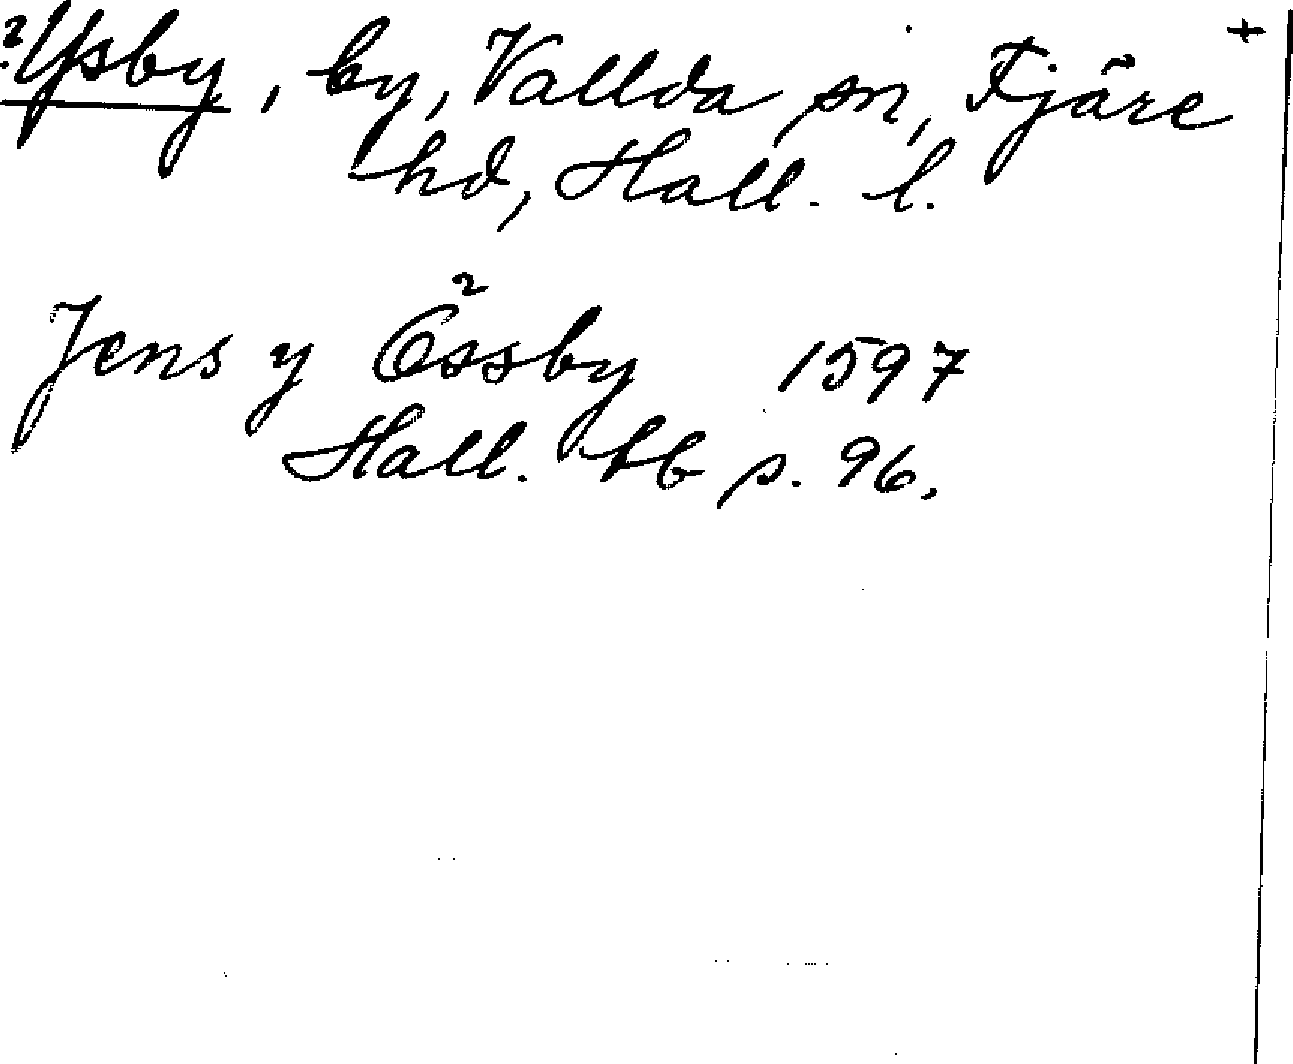 ? Ysby, by, Vallda sn, Fjäre +
hd, Hall. l.
Jens y Össby 1597
Hall. bb p. 96.